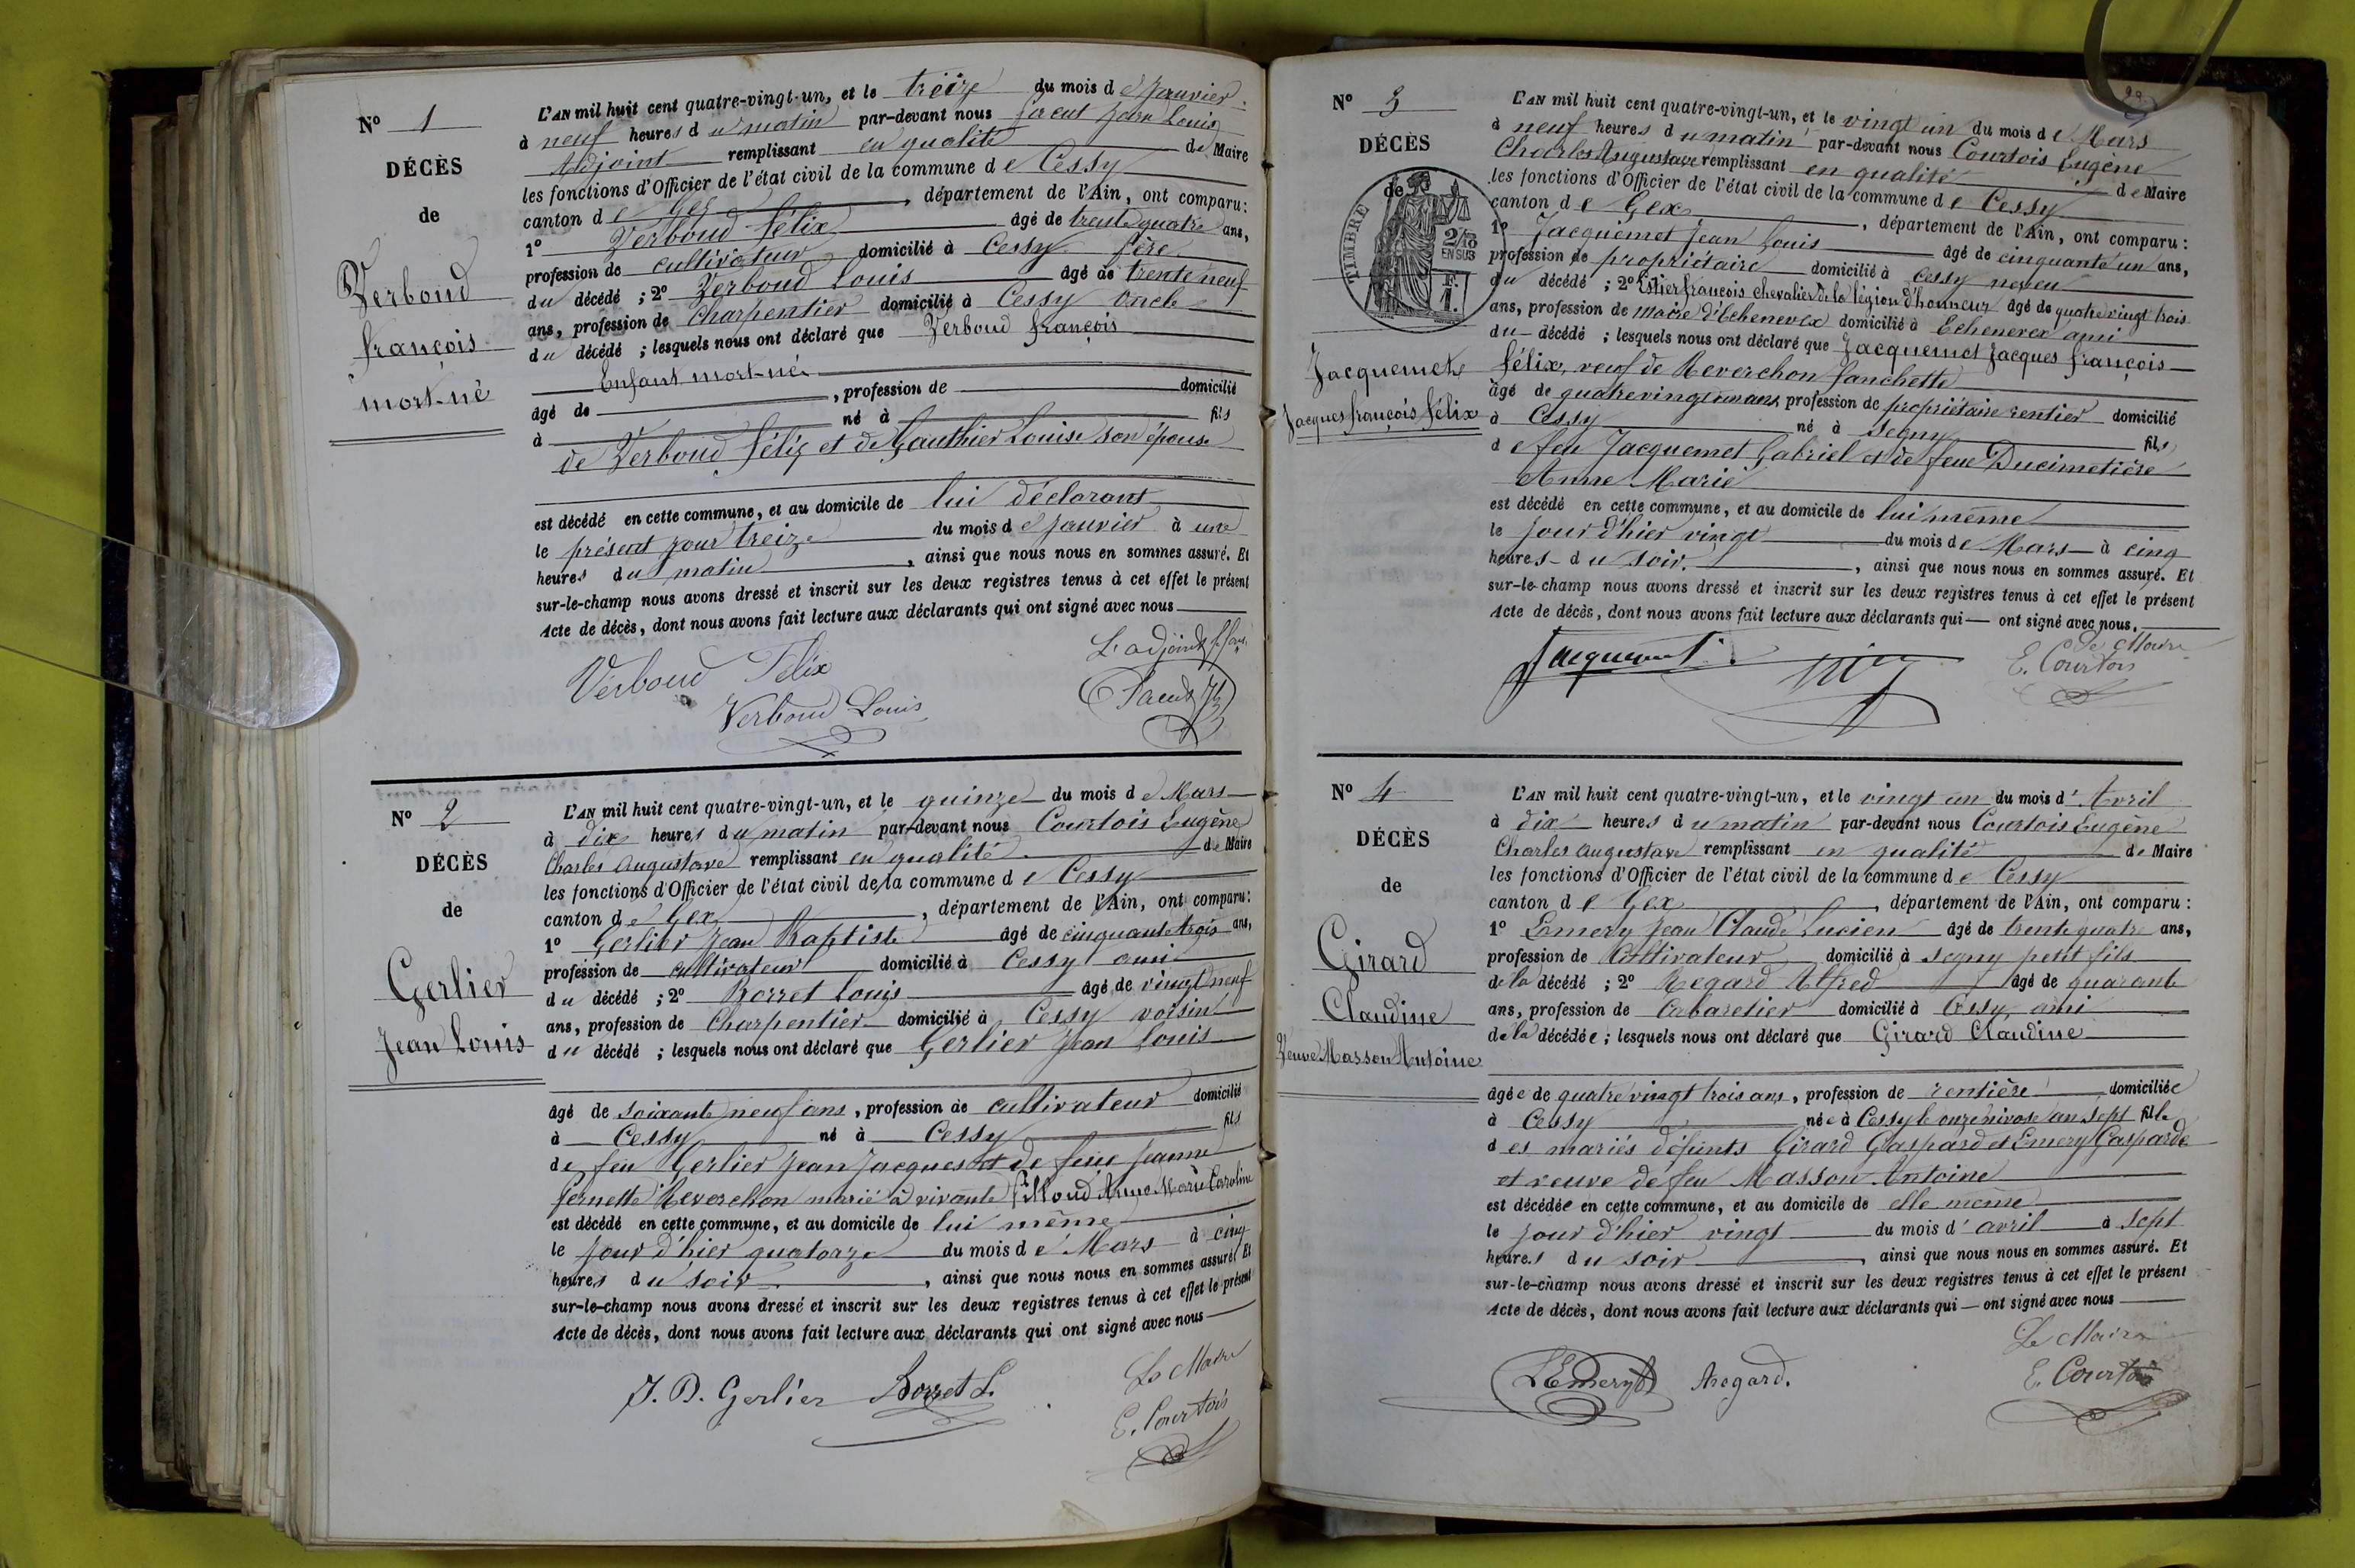 N° 1
DÉCÈS
de
Verboud
françois
mort-né
L'AN mil huit cent quatre-vingt-un, et le treize du mois de Janvier
à neuf heures du matin par-devant nous Jean Louis
Adjoint remplissant en qualité de Maire
les fonctions d'Officier de l'état civil de la commune de Cessy
canton de Gex, département de l'Ain, ont comparu:
1° Verboud félix âgé de trente quatre ans,
profession de cultivateur domicilié à Cessy père
du décédé ; 2° Verboud Louis âgé de trente neuf
ans, profession de Charpentier domicilié à Cessy oncle
du décédé ; lesquels nous ont déclaré que Verboud françois
Enfant mort-né
âgé de , profession de domicilié
à né à fils
de Verboud félix et de Gauthier Louise son épouse
est décédé en cette commune, et au domicile de lui déclarant
le présent jour treize du mois de Janvier à une
heures du matin, ainsi que nous nous en sommes assuré. Et
sur-le-champ nous avons dressé et inscrit sur les deux registres tenus à cet effet le présent
Acte de décès, dont nous avons fait lecture aux déclarants qui ont signé avec nous
L'adjoint
Verboud Félix
Verboud Louis
N° 2
DÉCÈS
de
Gerlier
Jean Louis
L'AN mil huit cent quatre-vingt-un, et le quinze du mois de Mars
à dix heures du matin par-devant nous Courtois Eugène
Charles Augustave remplissant en qualité de Maire
les fonctions d'Officier de l'état civil de la commune de Cessy
canton de Gex, département de l'Ain, ont comparu:
1° Gerlier Jean Baptiste âgé de cinquante trois ans,
profession de cultivateur domicilié à Cessy ami
du décédé ; 2° Borret Louis âgé de vingt neuf
ans, profession de Charpentier domicilié à Cessy voisin
du décédé ; lesquels nous ont déclaré que Gerlier Jean Louis
âgé de soixante neuf ans, profession de cultivateur domicilié
à Cessy né à Cessy fils
de feu Gerlier Jean Jacques et de feue Jeanne
Pernette Reverchon marié à vivante Anne Marie Caroline
est décédé en cette commune, et au domicile de lui même
le jour d'hier quatorze du mois de Mars à cinq
heures du soir, ainsi que nous nous en sommes assuré. Et
sur-le-champ nous avons dressé et inscrit sur les deux registres tenus à cet effet le présent
Acte de décès, dont nous avons fait lecture aux déclarants qui ont signé avec nous
Le Maire
J. B. Gerlier Borret L.
E. Courtois
N° 3
DÉCÈS
de
TIMBRE
2/10
EN SUS
1 F.
Jacquemet
Jacques françois félix
L'AN mil huit cent quatre-vingt-un, et le vingt un du mois de Mars
à neuf heures du matin par-devant nous Courtois Eugène
Charles Augustave remplissant en qualité de Maire
les fonctions d'Officier de l'état civil de la commune de Cessy
canton de Gex, département de l'Ain, ont comparu :
1° Jacquemet Jean Louis âgé de cinquante un ans,
profession de propriétaire domicilié à Cessy neveu
du décédé ; 2° Estier françois chevalier de la légion d'honneur âgé de quatre vingt trois
ans, profession de Maire d'Echenevex domicilié à Echenevex ami
du décédé ; lesquels nous ont déclaré que Jacquemet Jacques françois
félix, veuf de Reverchon fanchette
âgé de quatre vingt un ans, profession de propriétaire rentier domicilié
à Cessy né à Segny fils
de feu Jacquemet Gabriel et de feue Ducimetière
Anne Marie
est décédé en cette commune, et au domicile de lui même
le jour d'hier vingt du mois de Mars à cinq
heures du soir, ainsi que nous nous en sommes assuré. Et
sur-le-champ nous avons dressé et inscrit sur les deux registres tenus à cet effet le présent
Acte de décès, dont nous avons fait lecture aux déclarants qui ont signé avec nous.
Le Maire
Jacquemet
E. Courtois
N° 4
DÉCÈS
de
Girard
Claudine
Veuve Masson Antoine
L'AN mil huit cent quatre-vingt-un, et le vingt un du mois d'Avril
à dix heures du matin par-devant nous Courtois Eugène
Charles Augustave remplissant en qualité de Maire
les fonctions d'Officier de l'état civil de la commune de Cessy
canton de Gex, département de l'Ain, ont comparu :
1° Emery Jean Claude Lucien âgé de trente quatre ans,
profession de Cultivateur domicilié à Segny petit fils
de la décédé ; 2° Regard Alfred âgé de quarante
ans, profession de Cabaretier domicilié à Cessy, ami
de la décédée ; lesquels nous ont déclaré que Girard Claudine
âgée de quatre vingt trois ans, profession de rentière domiciliée
à Cessy née à Cessy le onze nivose an sept fille
des mariés défunts Girard Gaspard et Emery Gasparde
et veuve de feu Masson Antoine
est décédée en cette commune, et au domicile de elle même
le jour d'hier vingt du mois d'avril à sept
heures du soir, ainsi que nous nous en sommes assuré. Et
sur-le-champ nous avons dressé et inscrit sur les deux registres tenus à cet effet le présent
Acte de décès, dont nous avons fait lecture aux déclarants qui ont signé avec nous
Le Maire
LEmery Regard.
E. Courtois